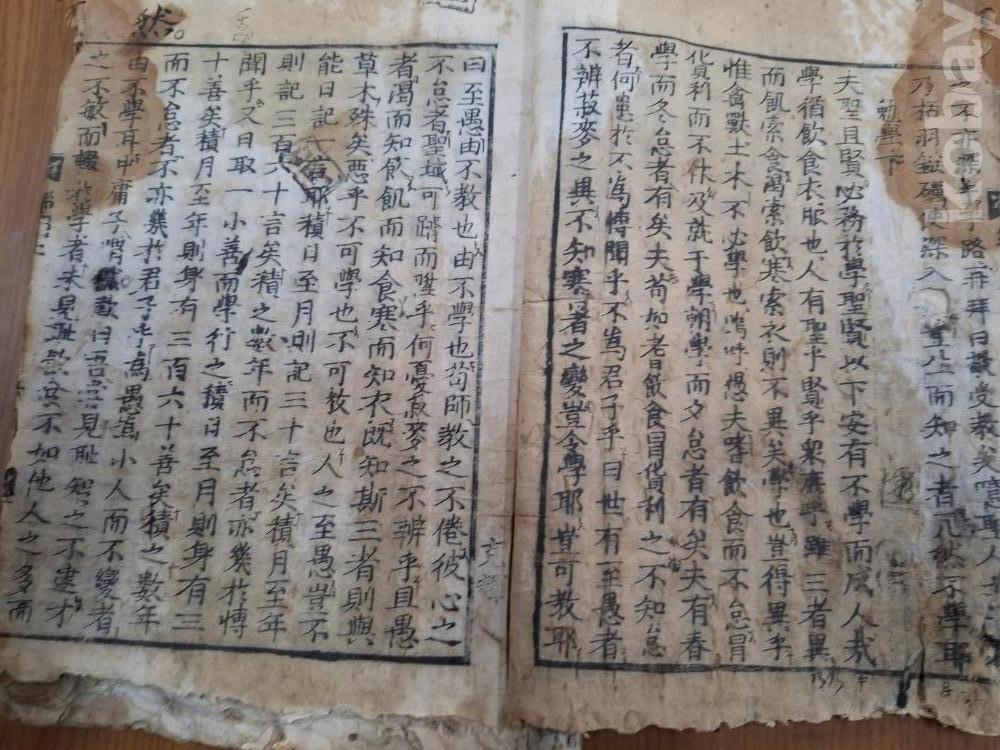 之不亦深乎子路再拜曰敬受教矣噫聖人
乃栝羽鏃礪使深入豈生而知之者兀然不學耶
勉學下
夫聖且賢必務於學聖賢以下安有不學而成人哉
學循飲食衣服也人有聖乎賢乎衆庶乎雖三者異
而飢索食渴索飲寒索衣則不異矣學也豈得異乎
惟禽獸土木不必學也嗚呼愚夫嗜飲食而不怠冒
貨利而不休及就于學朝學而夕怠者有矣夫有春
學而冬怠者有矣夫苟如者日飲食冒貨利之不知怠
者何患於不爲博聞乎不爲君子乎曰世有至愚者
不辨菽麥之異不知寒暑之變豈令學耶豈可教耶
曰至愚由不教也由不學也苟師教之不倦彼心之
不怠者聖域可躋而陞乎何憂菽麥之不辨乎且愚
者渴而知飲飢而知食寒而知衣既知斯三者則與
草木殊矣惡乎不可學也不可教也人之至愚豈不
能日記一言耶積日至月則記三十言矣積月至年
則記三百六十言矣積之數年而不怠者亦幾於博
聞乎又日取一小善而學行之積日至月則身有三
十善矣積月至年則身有三百六十善矣積之數年
而不怠者不亦幾於君子乎爲愚爲小人而不變者
由不學耳中庸子喟然歎曰吾嘗見耻智之不逮才
之不敏而輟於學者未見耻飲食不如他人之多而
然
kobay